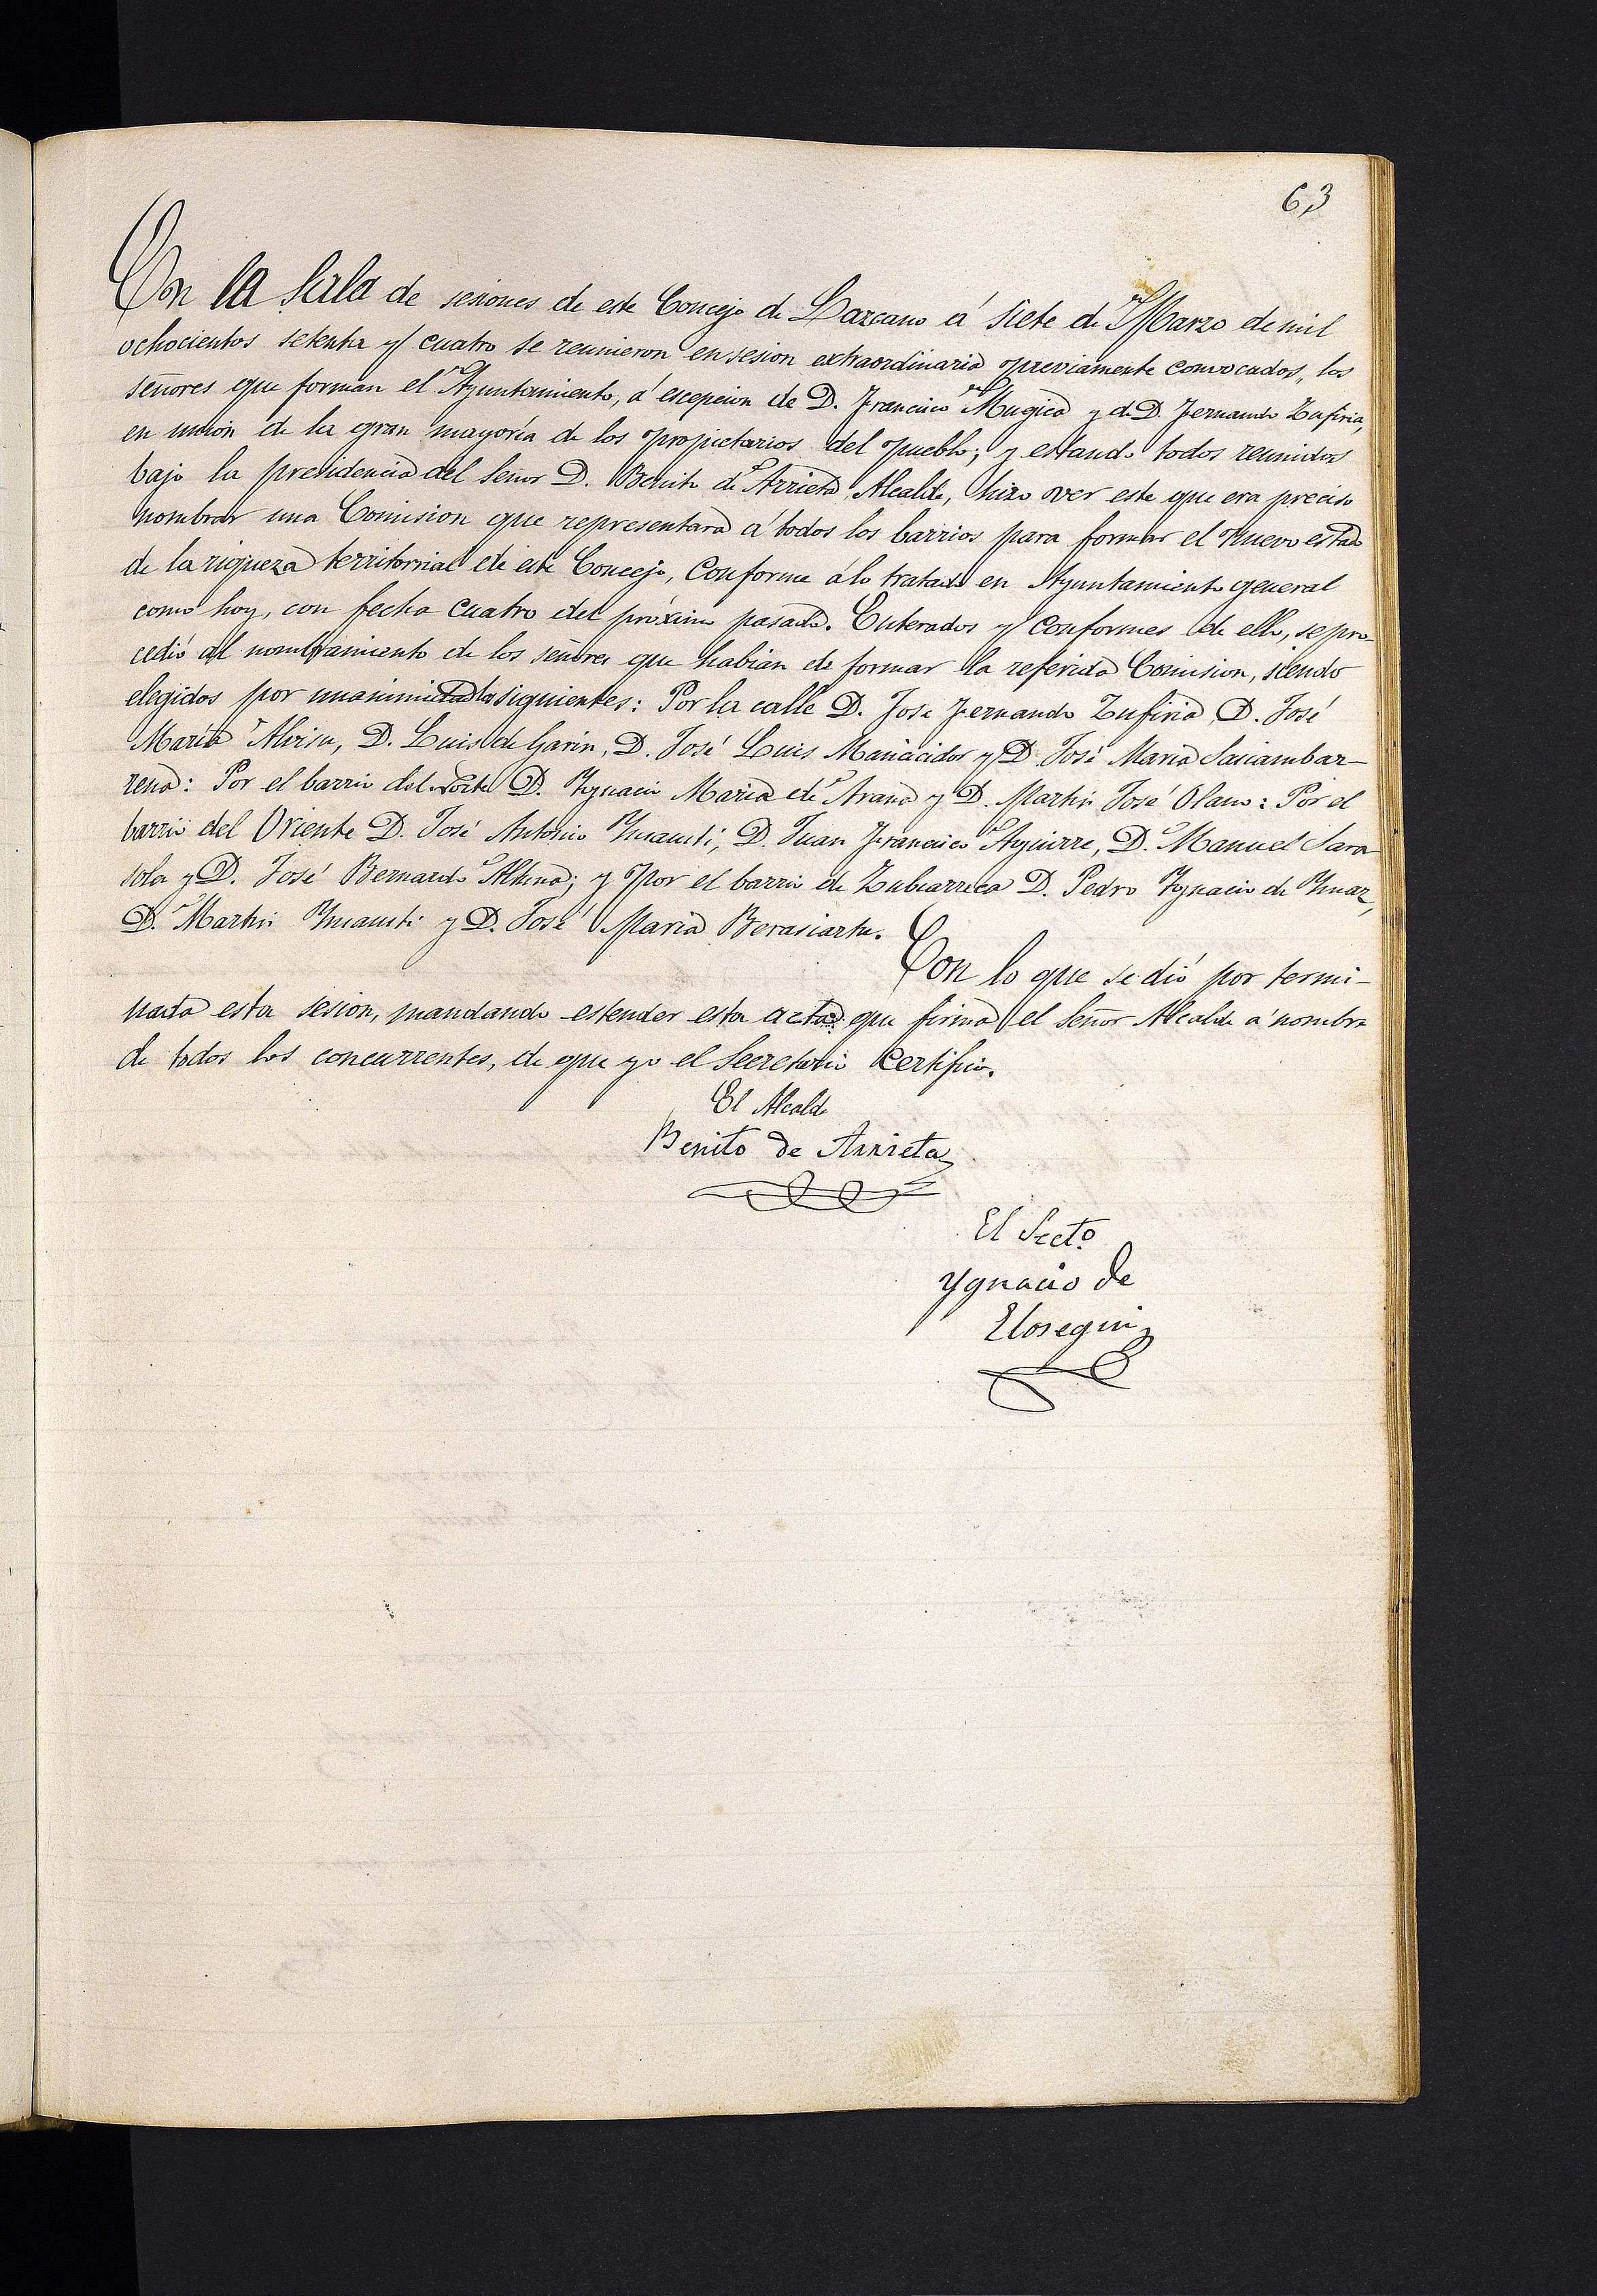 63
En la Sala de sesiones de este Concejo de Lazcano á siete de Marzo de mil
ochocientos setenta y cuatro se reunieron en sesion extraordinaria previamente convocados, los
señores que forman el Ayuntamiento, á escepcion de D. Francisco Mugica y de D. Fernando Zufiria,
en union de la gran mayoría de los propietarios del pueblo; y estando todos reunidos
bajo la presidencia del Señor D. Benito de Arrieta, Alcalde, hizo ver este que era preciso
nombrar una Comision que representara á todos los barrios para formar el nuevo estado
de la riqueza territorial de este Concejo, conforme á lo tratado en Ayuntamiento general
como hoy, con fecha cuatro del próximo pasado. Enterados y conformes de ello, se pro-
cedió al nombramiento de los señores que habian de formar la referida Comision, siendo
elegidos por unanimidad los siguientes: Por la calle D. José Fernando Zufiria, D. José
María Alvisu, D. Luis de Garin, D. José Luis Mañacidor y D. José María Sasiambar-
rena: Por el barrio del Norte D. Ygnacio María de Arana y D. Martin José Olano: Por el
barrio del Oriente D. José Antonio Ynsausti, D. Juan Francisco Aguirre, D. Manuel Sara
sola y D. José Bernardo Altuna; y por el barrio de Zubiarrea D. Pedro Ygnacio de Ymaz,
D. Martin Ynsausti y D. José María Berasiartu.
Con lo que se dió por termi-
nada esta sesion, mandando estender esta acta que firma el Señor Alcalde á nombre
de todos los concurrentes, de que yo el Secretario Certifico.
El Alcalde
Benito de Arrieta
El Scet.º
Ygnacio de
Elosegui